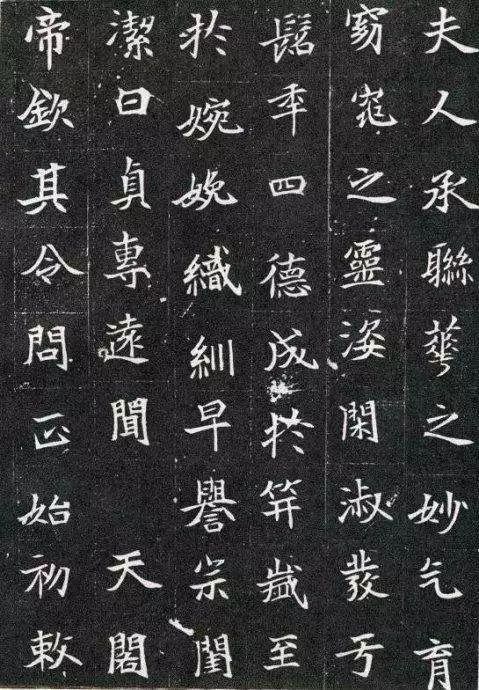 夫人承聯華之妙气育
窈窕之靈姿閑淑發于
髫年四德成於笄歲至
於婉娩織紃早譽宗閨
潔曰貞專遠聞　天閣
帝欽其令問正始初敕